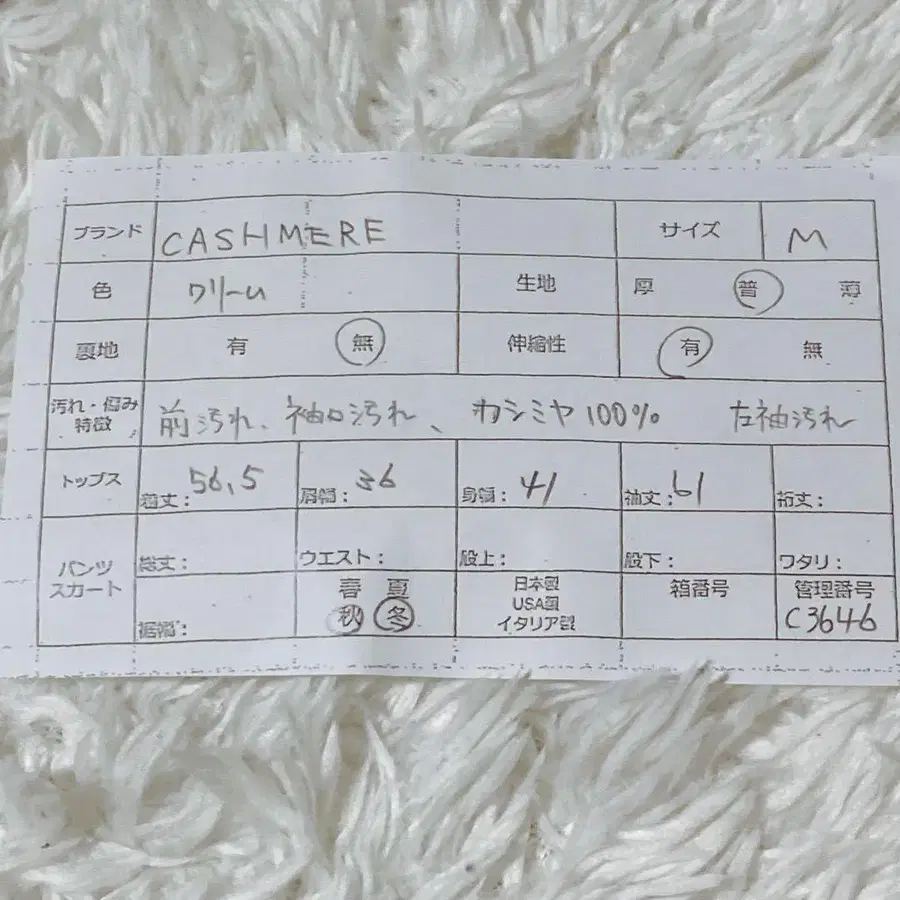 ブランド CASHMERE サイズ M
色 クリーム 生地 厚 普 薄
裏地 有 無 伸縮性 有 無
汚れ・傷み
特徴 前汚れ、袖口汚れ、カシミヤ100% 左袖汚れ
トップス 着丈: 56.5 肩幅: 36 身幅: 41 袖丈: 61 裄丈:
パンツ
スカート
総丈: ウエスト: 股上: 股下: ワタリ:
裾幅: 春 夏 日本製 箱番号 管理番号
秋 冬 USA製 C3646
イタリア製